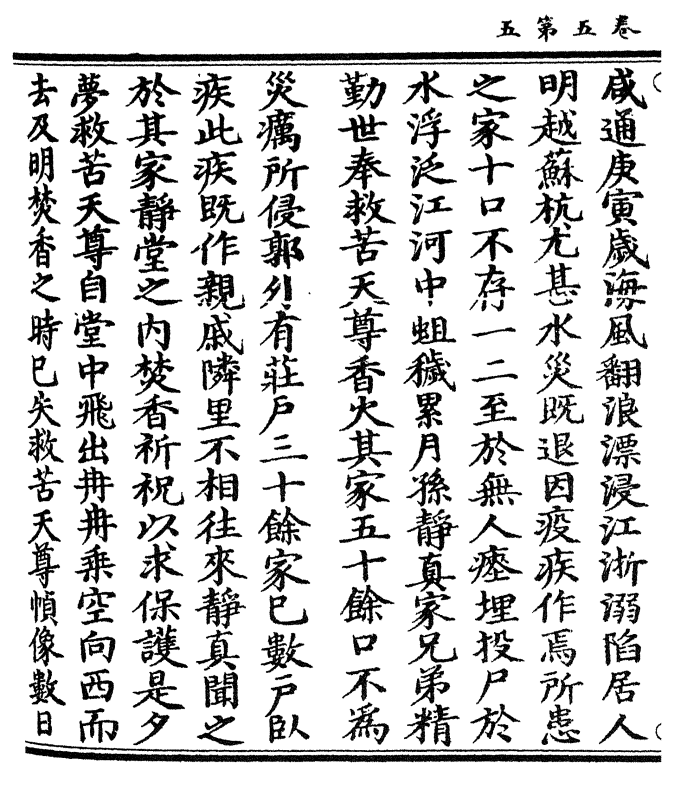 卷五第五
咸通庚寅歲海風翻浪漂浸江浙溺陷居人
明越蘇杭尤甚水災既退因疫疾作焉所患
之家十口不存一二至於無人瘞埋投尸於
水浮泛江河中蛆穢累月孫靜真家兄弟精
勤世奉救苦天尊香火其家五十餘口不為
災癘所侵郭外有莊戶三十餘家巳數戶臥
疾此疾既作親戚隣里不相往來靜真聞之
於其家靜堂之內焚香祈祝以求保護是夕
夢救苦天尊自堂中飛出冉冉乘空向西而
去及明焚香之時巳失救苦天尊幀像數日